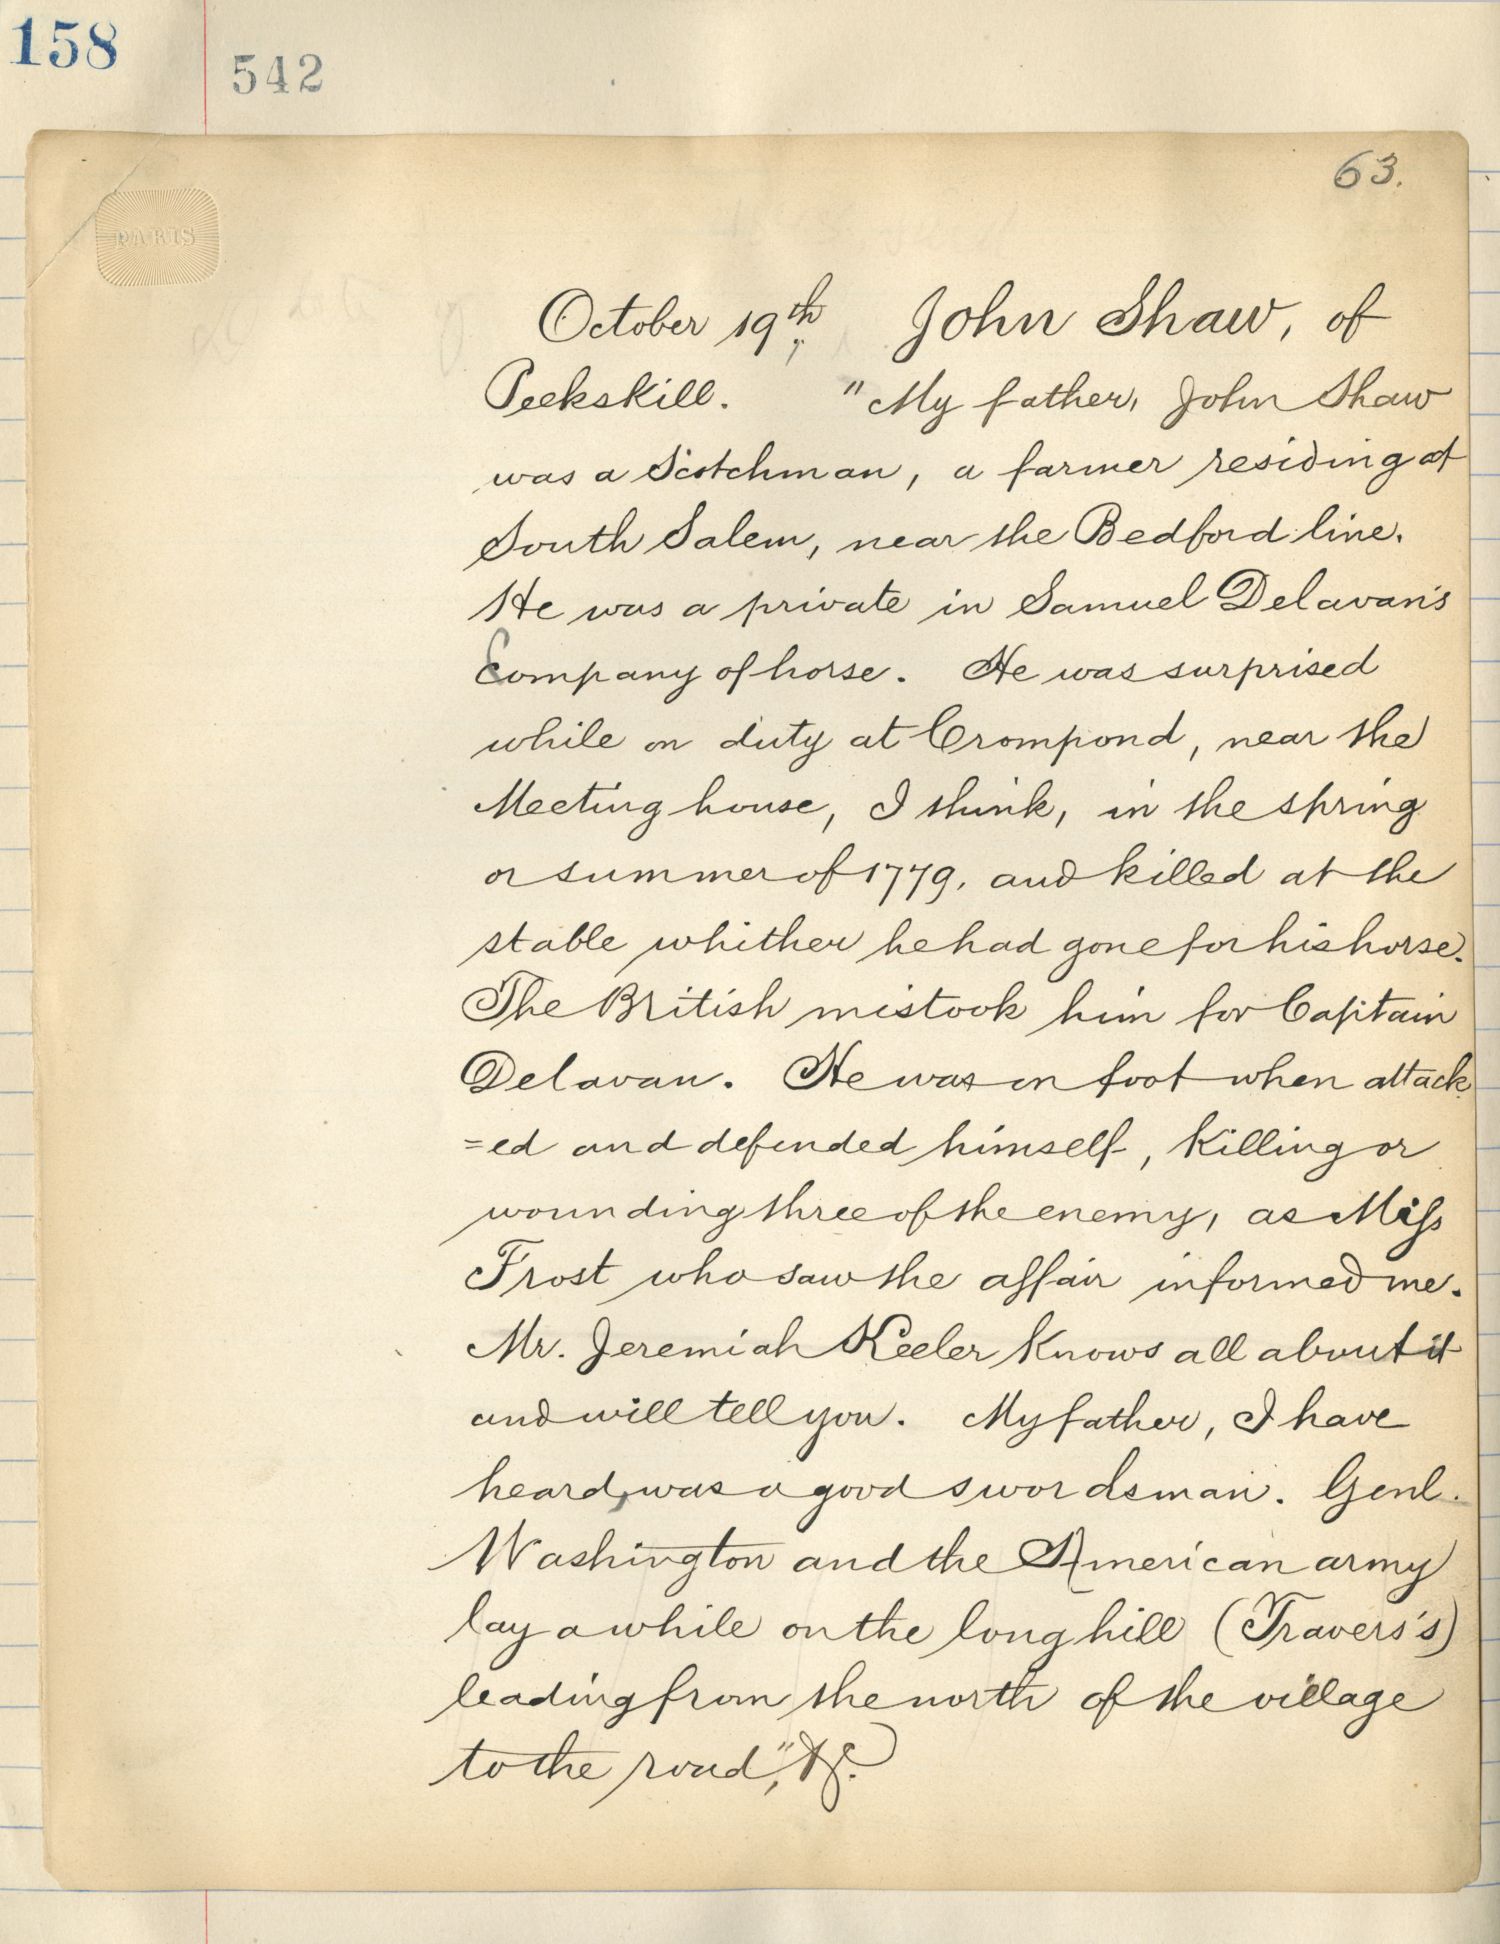 158
542
63.
PARIS
October 19th, John Shaw, of
Peekskill. "My father, John Shaw
was a Scotchman, a farmer residing at
South Salem, near the Bedford line.
He was a private in Samuel Delavan's
Company of horse. He was surprised
while on duty at Crompond, near the
Meeting house, I think, in the spring
or summer of 1779, and killed at the
stable whither he had gone for his horse.
The British mistook him for Captain
Delavan. He was on foot when attack
=ed and defended himself, killing or
wounding three of the enemy, as Miss
Frost who saw the affair informed me.
Mr. Jeremiah Keeler knows all about it
and will tell you. My father, I have
heard, was a good swordsman. Genl.
Washington and the American army
lay awhile on the long hill (Travers's)
leading from the north of the village
to the road," &c.